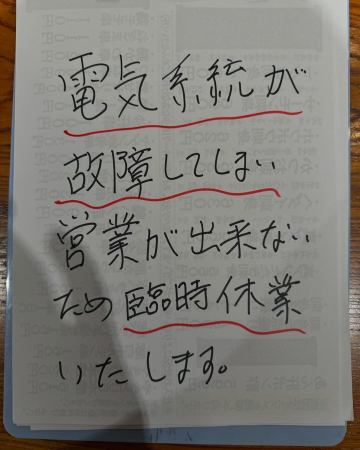 電気系統が
故障してしまい
営業が出来ない
ため臨時休業
いたします。